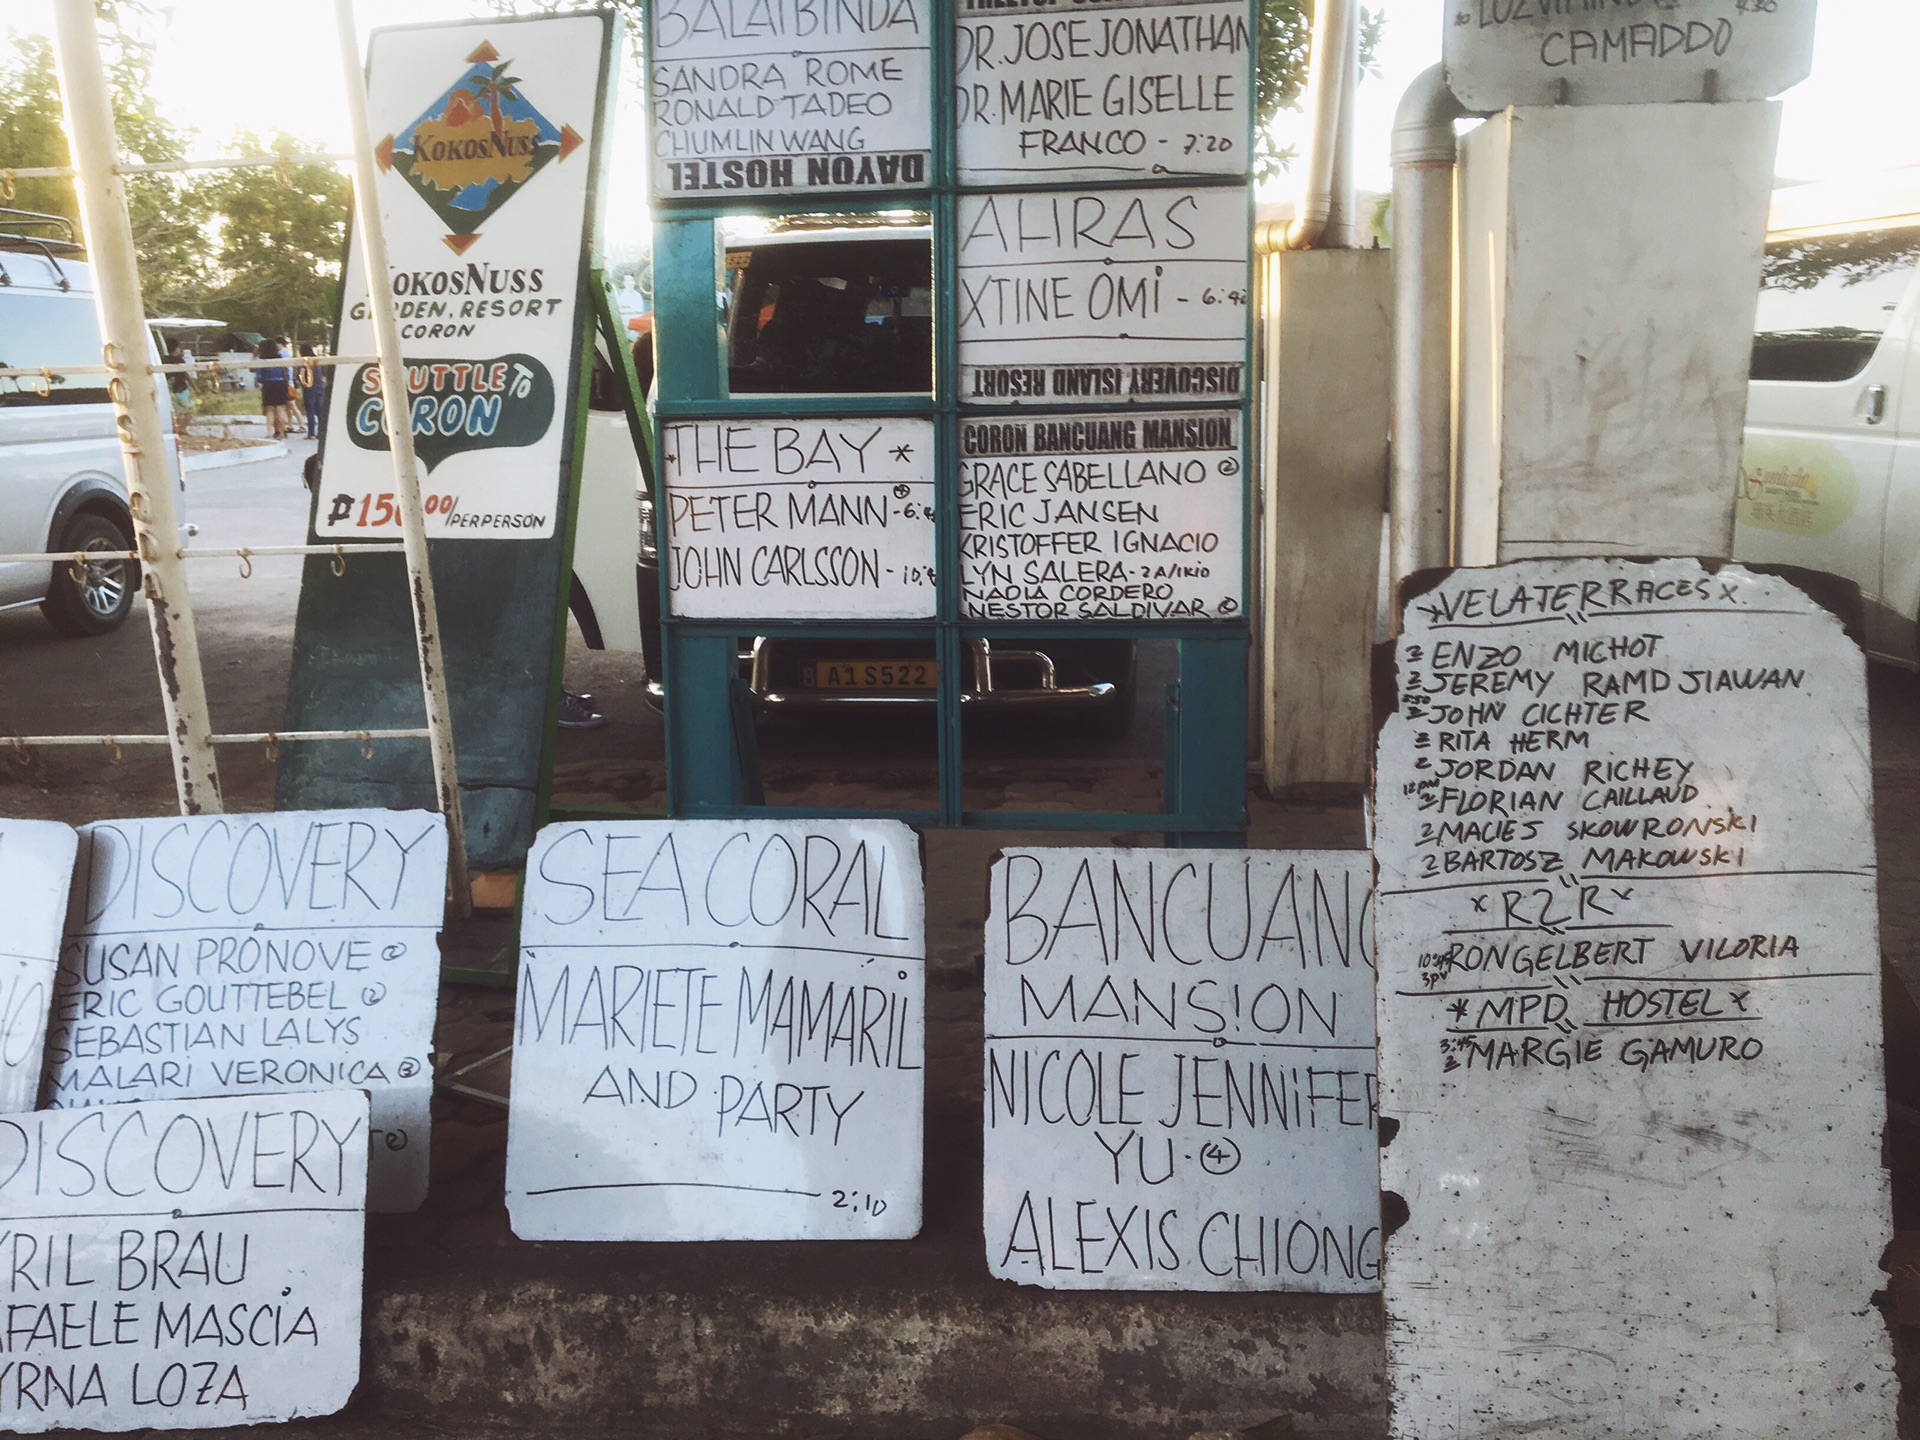 KOKOSNUSS
KOKOSNUSS
GARDEN, RESORT
CORON
SHUTTLE TO
CORON
₱150.00/PER PERSON
BALAI BINDA
SANDRA ROME
RONALD TADEO
CHUMLIN WANG
DAYON HOSTEL
DR. JOSE JONATHAN
DR. MARIE GISELLE
FRANCO - 7:20
AHRAS
XTINE OMI - 6:4
DISCOVERY ISLAND RESORT
*THE BAY*
PETER MANN - 6:4
JOHN CARLSSON - 10:
CORON BANCUANG MANSION
GRACE SABELLANO ②
ERIC JANSEN
KRISTOFFER IGNACIO
LYN SALERA - 2A/1KID
NADIA CORDERO
NESTOR SALDIVAR ②
A1S522
CAMADDO
*VELA TERRACES X
2 ENZO MICHOT
2 JEREMY RAMDJIAWAN
2 JOHN CICHTER
2 RITA HERM
2 JORDAN RICHEY
12PM 2 FLORIAN CAILLAUD
2 MACIES SKOWRONSKI
2 BARTOSZ MAKOWSKI
X R2R X
RONGELBERT VILORIA
3PM
*MPD HOSTEL X
3:45 2 MARGIE GAMURO
DISCOVERY
SUSAN PRONOVE ②
ERIC GOUTTEBEL ②
SEBASTIAN LALYS
MALARI VERONICA ③
DISCOVERY
YRIL BRAU
AFAELE MASCIA
YRNA LOZA
SEA CORAL
MARIETE MAMARIL
AND PARTY
2:10
BANCUANG
MANSION
NICOLE JENNIFER
YU - ④
ALEXIS CHIONG